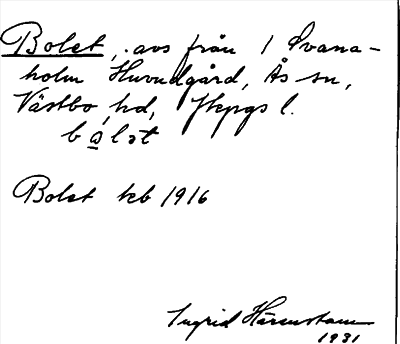 Bolet, avs från 1 Svana-
holm Huvudgård, Ås sn,
Västbo hd, Jkpgs l.
bo̱lət
Bolet kb 1916
Ingrid Härenstam
1931